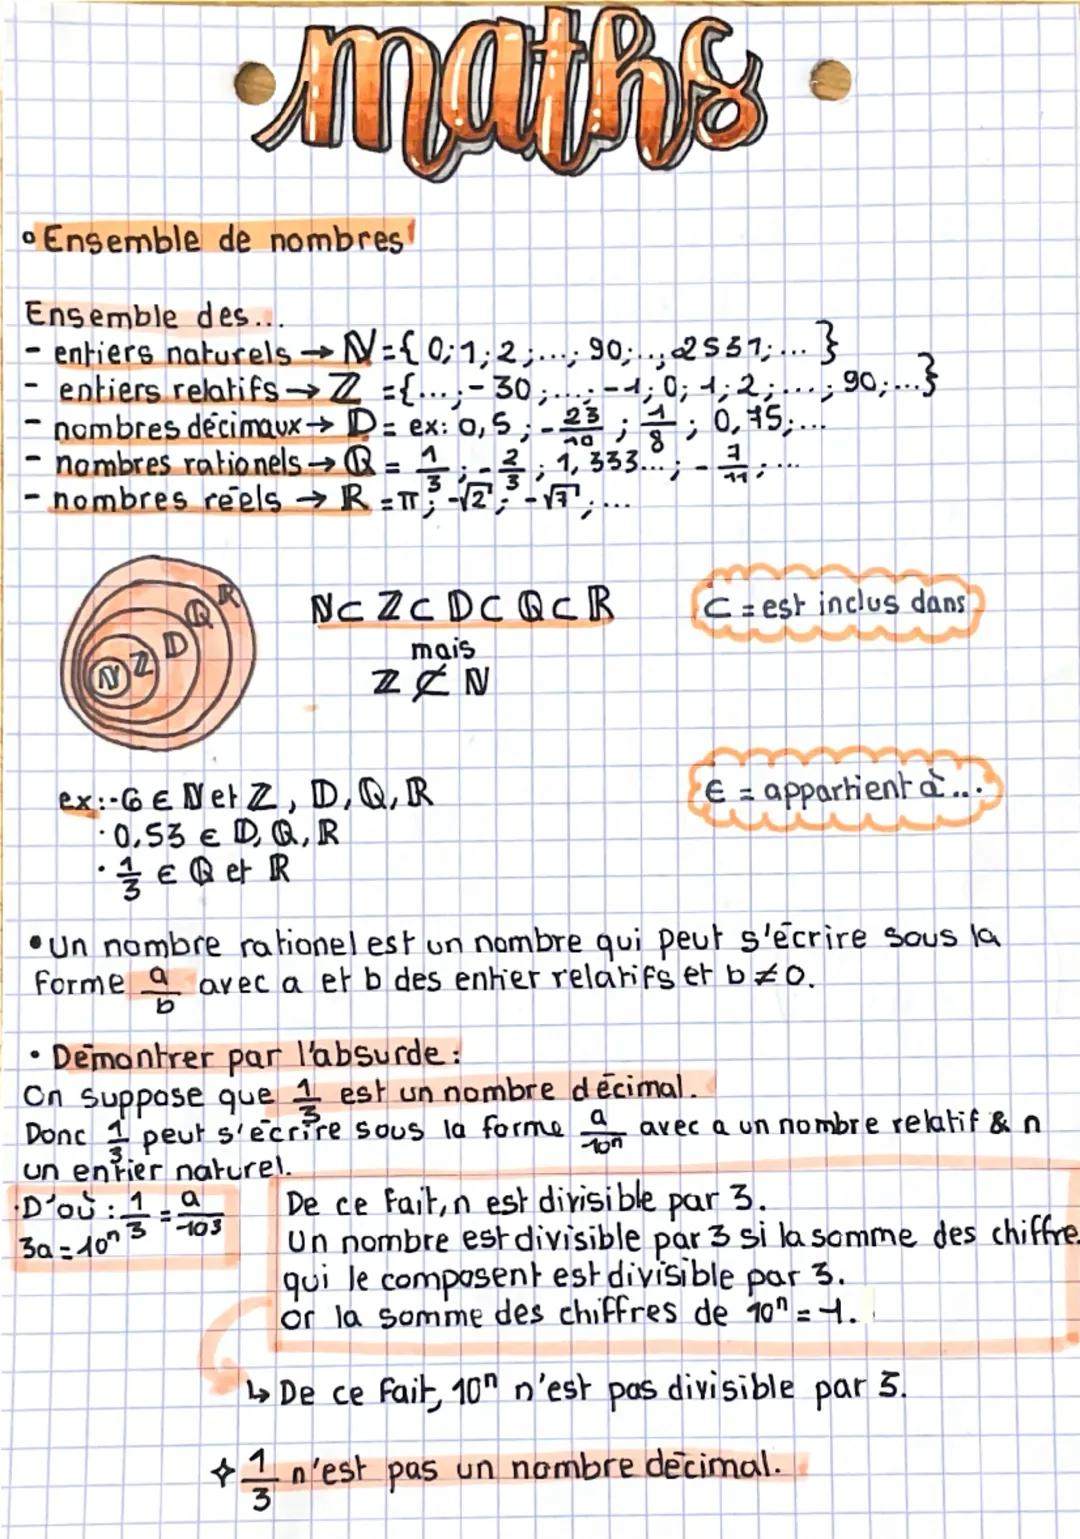 maths
Ensemble de nombres
Ensemble des...
- entiers naturels → ℕ = { 0; 1; 2; ...; 90; ..; 2531; ... }
- entiers relatifs → ℤ = {...; -30; ...; -1; 0; 1; 2; ...; 90; ...}
- nombres décimaux → 𝔻 = ex: 0,5 ; -23/10 ; 1/8 ; 0,75; ...
- nombres rationels → ℚ = 1/3 ; -2/3 ; 1,333... ; -7/11 ; ...
- nombres réels → ℝ = π ; -√2 ; -√7 ; ...
ℕ ℤ 𝔻 ℚ ℝ
ℕ ⊂ ℤ ⊂ 𝔻 ⊂ ℚ ⊂ ℝ
mais
ℤ ⊄ ℕ
⊂ = est inclus dans
ex: - 6 ∈ ℕ et ℤ, 𝔻, ℚ, ℝ
· 0,53 ∈ 𝔻, ℚ, ℝ
· 1/3 ∈ ℚ et ℝ
∈ = appartient à ...
• Un nombre rationel est un nombre qui peut s'écrire sous la
forme a/b avec a et b des entier relatifs et b ≠ 0.
• Démontrer par l'absurde :
On suppose que 1/3 est un nombre décimal.
Donc 1/3 peut s'écrire sous la forme a/10ⁿ avec a un nombre relatif & n
un entier naturel.
· D'où : 1/3 = a/10³
3a = 10ⁿ
De ce fait, n est divisible par 3.
Un nombre est divisible par 3 si la somme des chiffre
qui le composent est divisible par 3.
or la somme des chiffres de 10ⁿ = 1.
↳ De ce fait, 10ⁿ n'est pas divisible par 3.
✧ 1/3 n'est pas un nombre décimal.